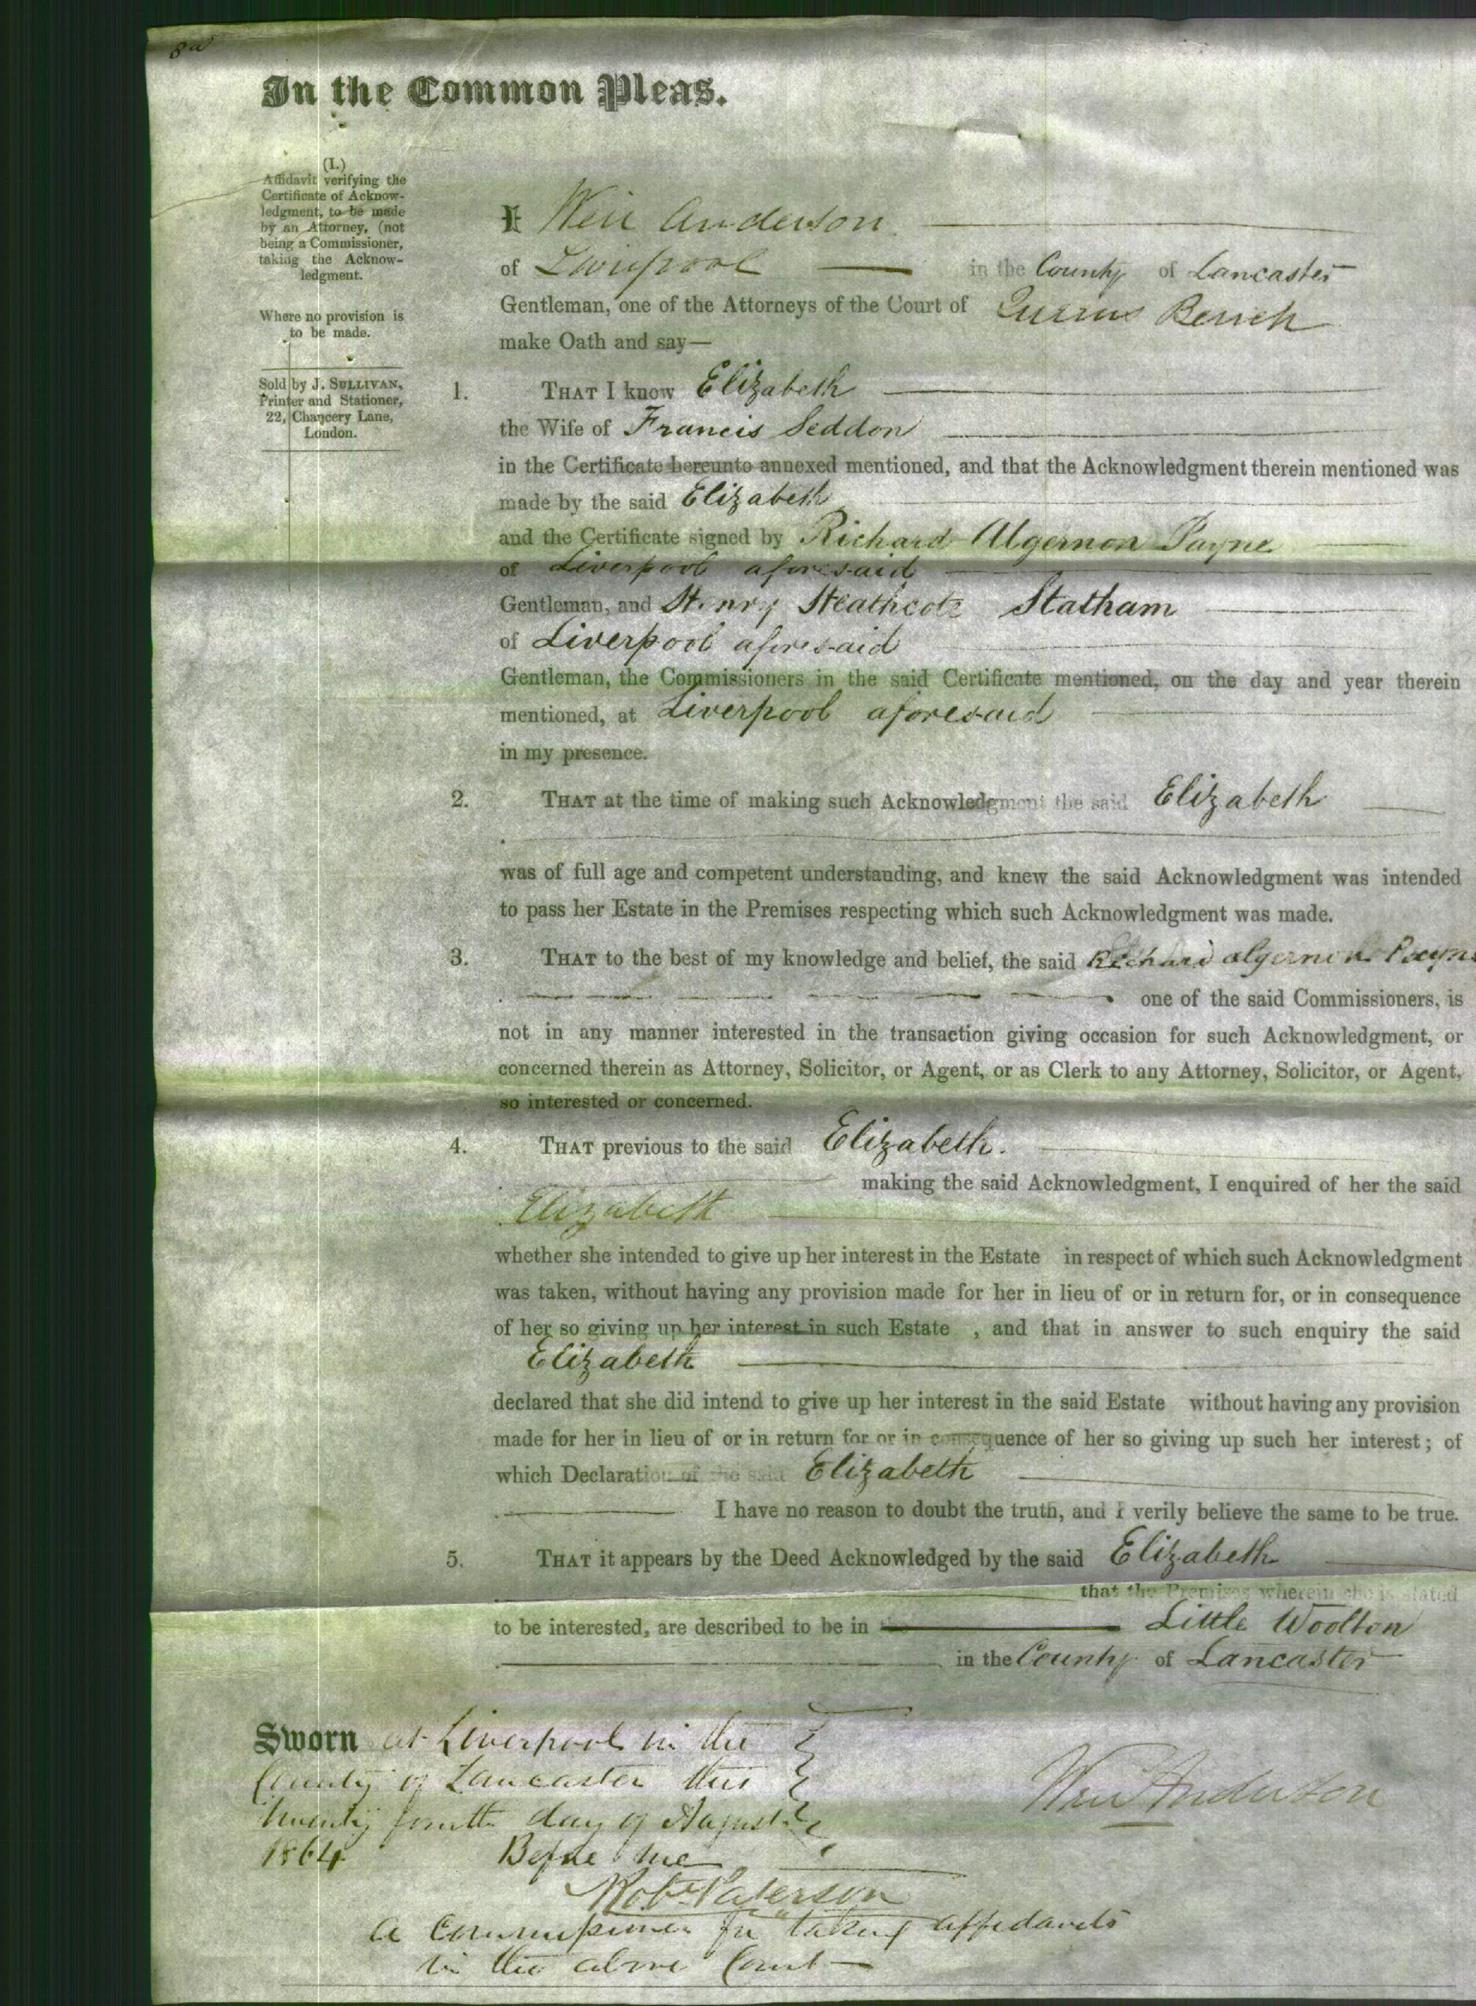 In the Common Pleas.
(I.)
Affidavit verifying the
Certificate of Acknow-
ledgment, to be made
by an Attorney, (not
being a Commissioner,
taking the Acknow-
ledgment.
Where no provision is
to be made.
Sold by J. SULLIVAN,
Printer and Stationer,
22, Chancery Lane,
London.
I Weir Anderson
of Liverpool in the County of Lancaster
Gentleman, one of the Attorneys of the Court of Queens Bench
make Oath and say—
1. THAT I know Elizabeth
the Wife of Francis Seddon
in the Certificate hereunto annexed mentioned, and that the Acknowledgment therein mentioned was
made by the said Elizabeth
and the Certificate signed by Richard Algernon Payne
of Liverpool aforesaid
Gentleman, and Henry Heathcote Statham
of Liverpool aforesaid
Gentleman, the Commissioners in the said Certificate mentioned, on the day and year therein
mentioned, at Liverpool aforesaid
in my presence.
2. THAT at the time of making such Acknowledgment the said Elizabeth
was of full age and competent understanding, and knew the said Acknowledgment was intended
to pass her Estate in the Premises respecting which such Acknowledgment was made.
3. THAT to the best of my knowledge and belief, the said Richard Algernon Payne
one of the said Commissioners, is
not in any manner interested in the transaction giving occasion for such Acknowledgment, or
concerned therein as Attorney, Solicitor, or Agent, or as Clerk to any Attorney, Solicitor, or Agent,
so interested or concerned.
4. THAT previous to the said Elizabeth.
making the said Acknowledgment, I enquired of her the said
Elizabeth
whether she intended to give up her interest in the Estate in respect of which such Acknowledgment
was taken, without having any provision made for her in lieu of or in return for, or in consequence
of her so giving up her interest in such Estate , and that in answer to such enquiry the said
Elizabeth
declared that she did intend to give up her interest in the said Estate without having any provision
made for her in lieu of or in return for or in consequence of her so giving up such her interest; of
which Declaration of the said Elizabeth
I have no reason to doubt the truth, and I verily believe the same to be true.
5. THAT it appears by the Deed Acknowledged by the said Elizabeth
that the Premises wherein she is stated
to be interested, are described to be in the Little Woolton
in the County of Lancaster
Sworn at Liverpool in the
County of Lancaster this
twenty fourth day of August
1864 Before me
Weir Anderson
Robt Paterson
a Commissioner for taking affidavits
in the above Court